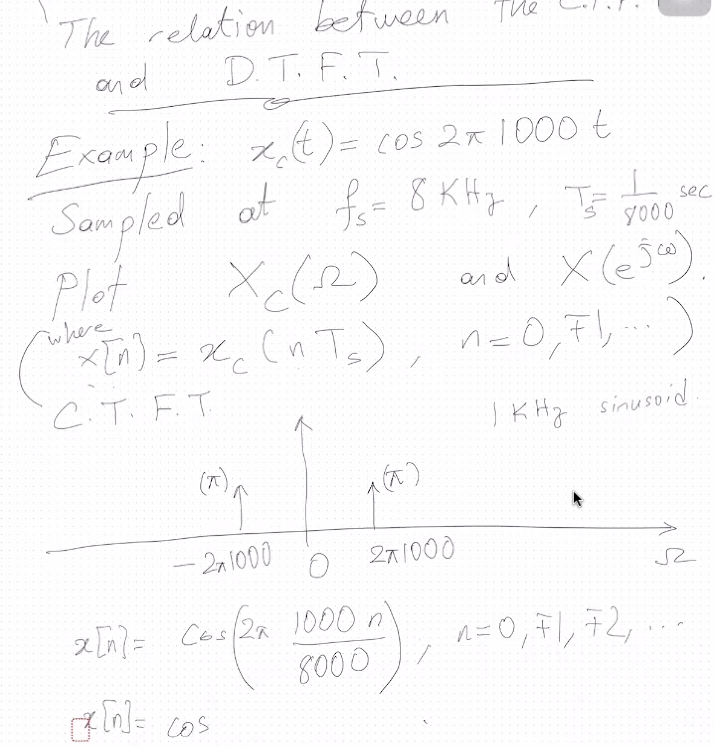 The relation between the C.T.F.
and D.T.F.T.
Example: x_c(t) = cos 2π 1000 t
Sampled at f_s = 8 KHz , T_s = 1/8000 sec
Plot X_c(Ω) and X(e^{jω}).
(where x[n] = x_c(nT_s), n = 0, ∓1, ...)
C.T.F.T. 1 KHz sinusoid.
(π) (π)
-2π1000 0 2π1000 Ω
x[n] = cos(2π 1000 n / 8000), n = 0, ∓1, ∓2, ...
x[n] = cos